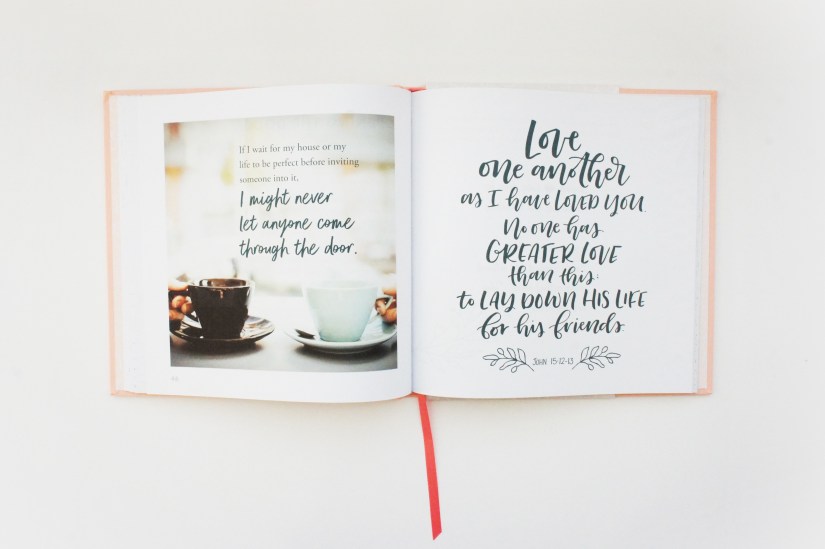 If I wait for my house or my
life to be perfect before inviting
someone into it,
I might never
let anyone come
through the door.
Love
one another
as I have LOVED YOU.
No one has
GREATER LOVE
than this:
to LAY DOWN HIS LIFE
for his friends.
JOHN 15:12-13